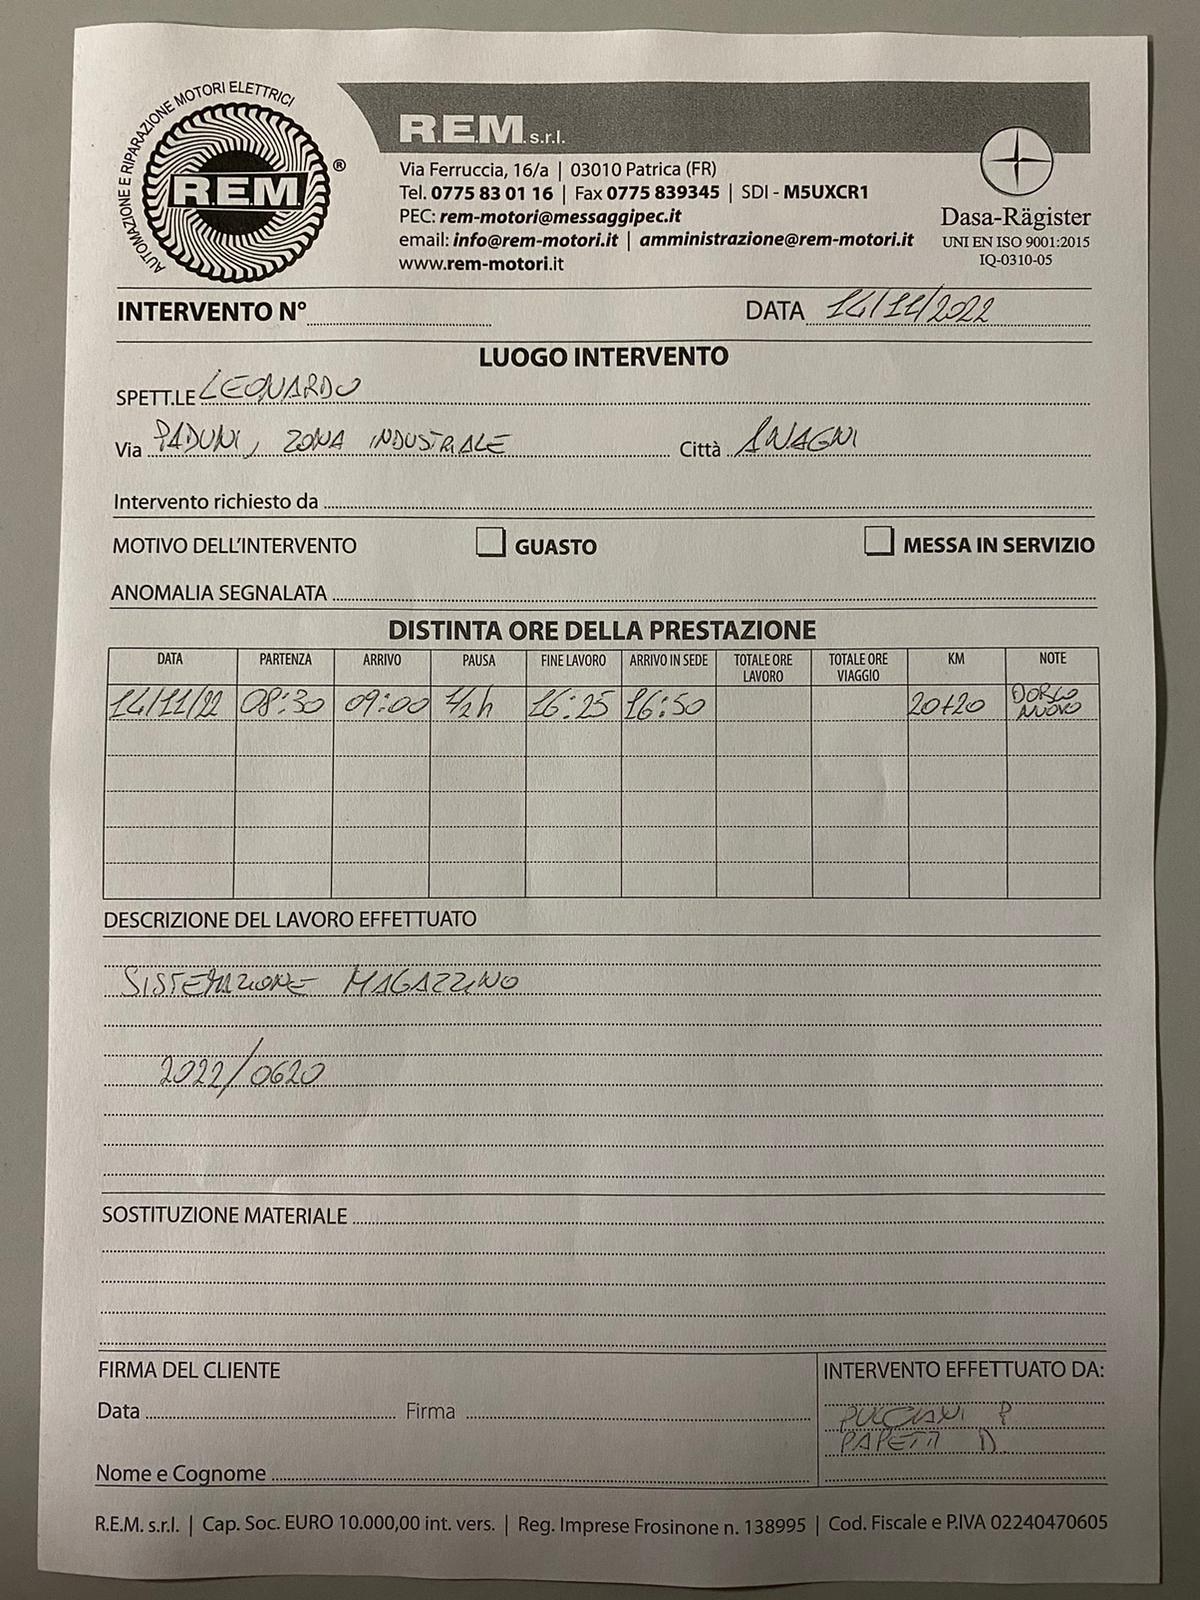 AUTOMAZIONE E RIPARAZIONE MOTORI ELETTRICI
R.E.M. ®
R.E.M. s.r.l.
Via Ferruccia, 16/a | 03010 Patrica (FR)
Tel. 0775 83 01 16 | Fax 0775 839345 | SDI - M5UXCR1
PEC: rem-motori@messaggipec.it
email: info@rem-motori.it | amministrazione@rem-motori.it
www.rem-motori.it
Dasa-Rägister
UNI EN ISO 9001:2015
IQ-0310-05
INTERVENTO N° DATA 14/11/2022
LUOGO INTERVENTO
SPETT.LE LEONARDO
Via PADUNI, ZONA INDUSTRIALE Città ANAGNI
Intervento richiesto da
MOTIVO DELL'INTERVENTO GUASTO MESSA IN SERVIZIO
ANOMALIA SEGNALATA
DISTINTA ORE DELLA PRESTAZIONE
DATA PARTENZA ARRIVO PAUSA FINE LAVORO ARRIVO IN SEDE TOTALE ORE LAVORO TOTALE ORE VIAGGIO KM NOTE
14/11/22 08:30 09:00 1/2h 16:25 16:50 20+20 NUOVO
DESCRIZIONE DEL LAVORO EFFETTUATO
SISTEMAZIONE MAGAZZINO
2022/0620
SOSTITUZIONE MATERIALE
FIRMA DEL CLIENTE
INTERVENTO EFFETTUATO DA:
Data Firma
PULCIANI P
PAPETTI D
Nome e Cognome
R.E.M. s.r.l. | Cap. Soc. EURO 10.000,00 int. vers. | Reg. Imprese Frosinone n. 138995 | Cod. Fiscale e P.IVA 02240470605